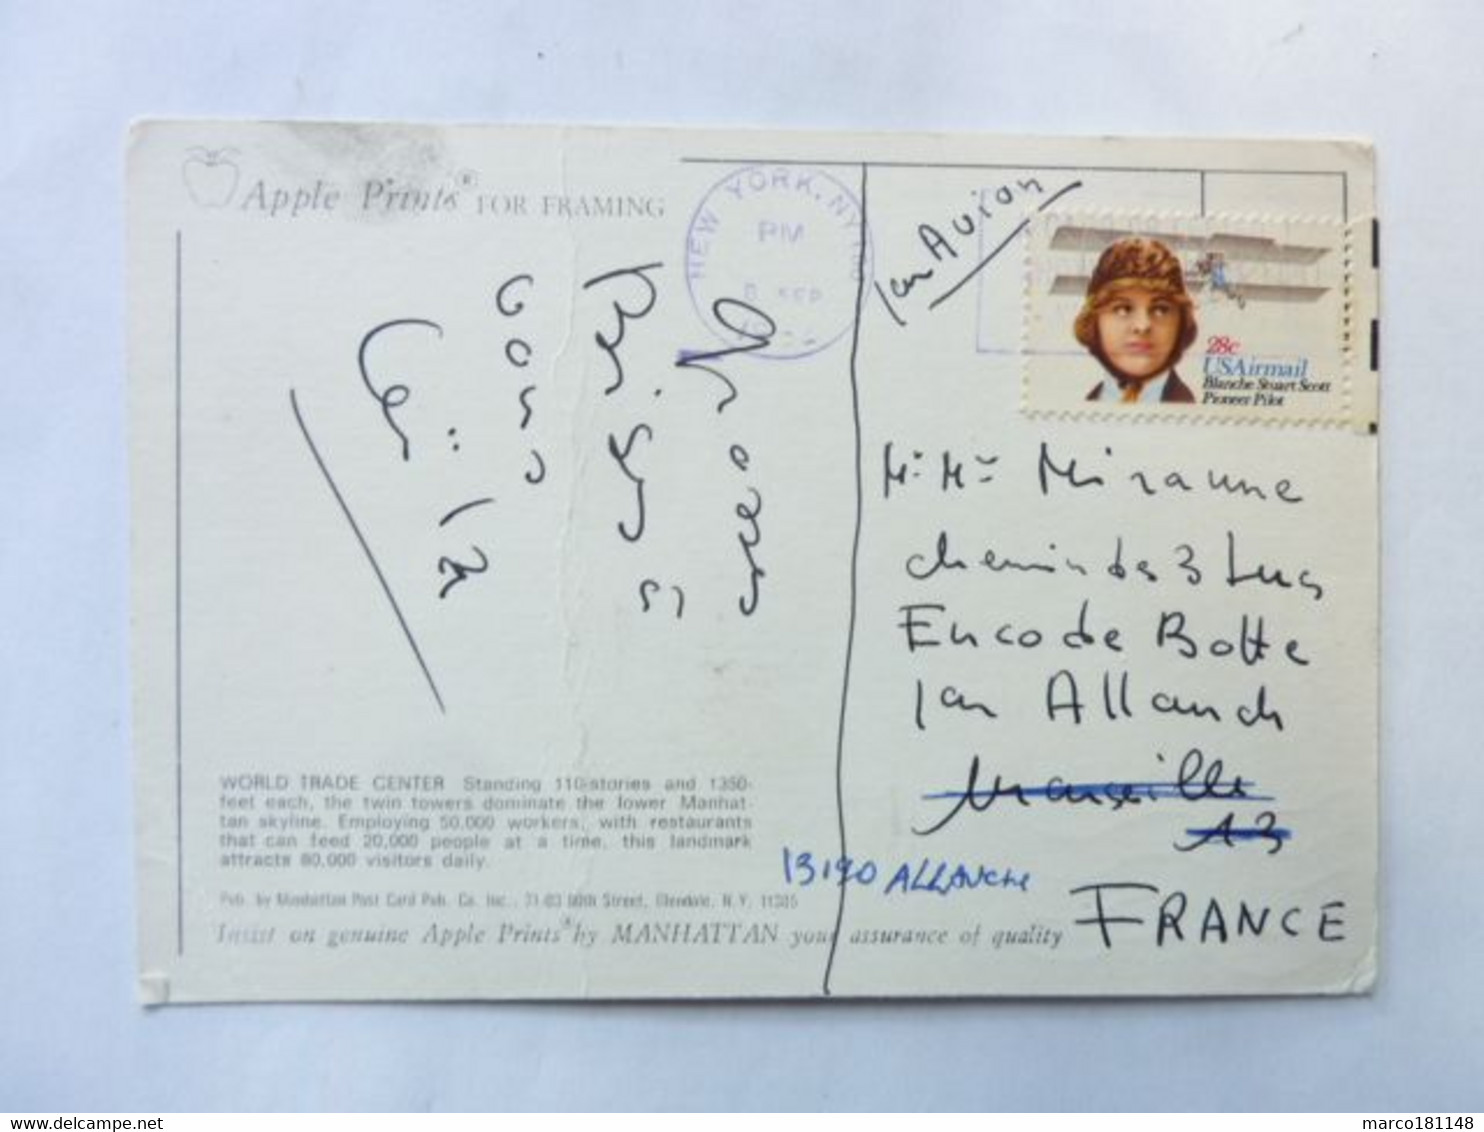 Apple Prints® FOR FRAMING
NEW YORK, NY
PM
8 SEP
Par Avion
28c
USAirmail
Blanche Stuart Scott
Pioneer Pilot
Mr Mme Miraune
chemin des 3 Lucs
Enco de Botte
Par Allauch
Marseille
13
13190 ALLAUCH
FRANCE
WORLD TRADE CENTER Standing 110-stories and 1350-
feet each, the twin towers dominate the lower Manhat-
tan skyline. Employing 50,000 workers, with restaurants
that can feed 20,000 people at a time, this landmark
attracts 80,000 visitors daily.
Pub. by Manhattan Post Card Pub. Co. Inc., 71-03 80th Street, Glendale, N. Y. 11385
Insist on genuine Apple Prints® by MANHATTAN your assurance of quality
marco181148